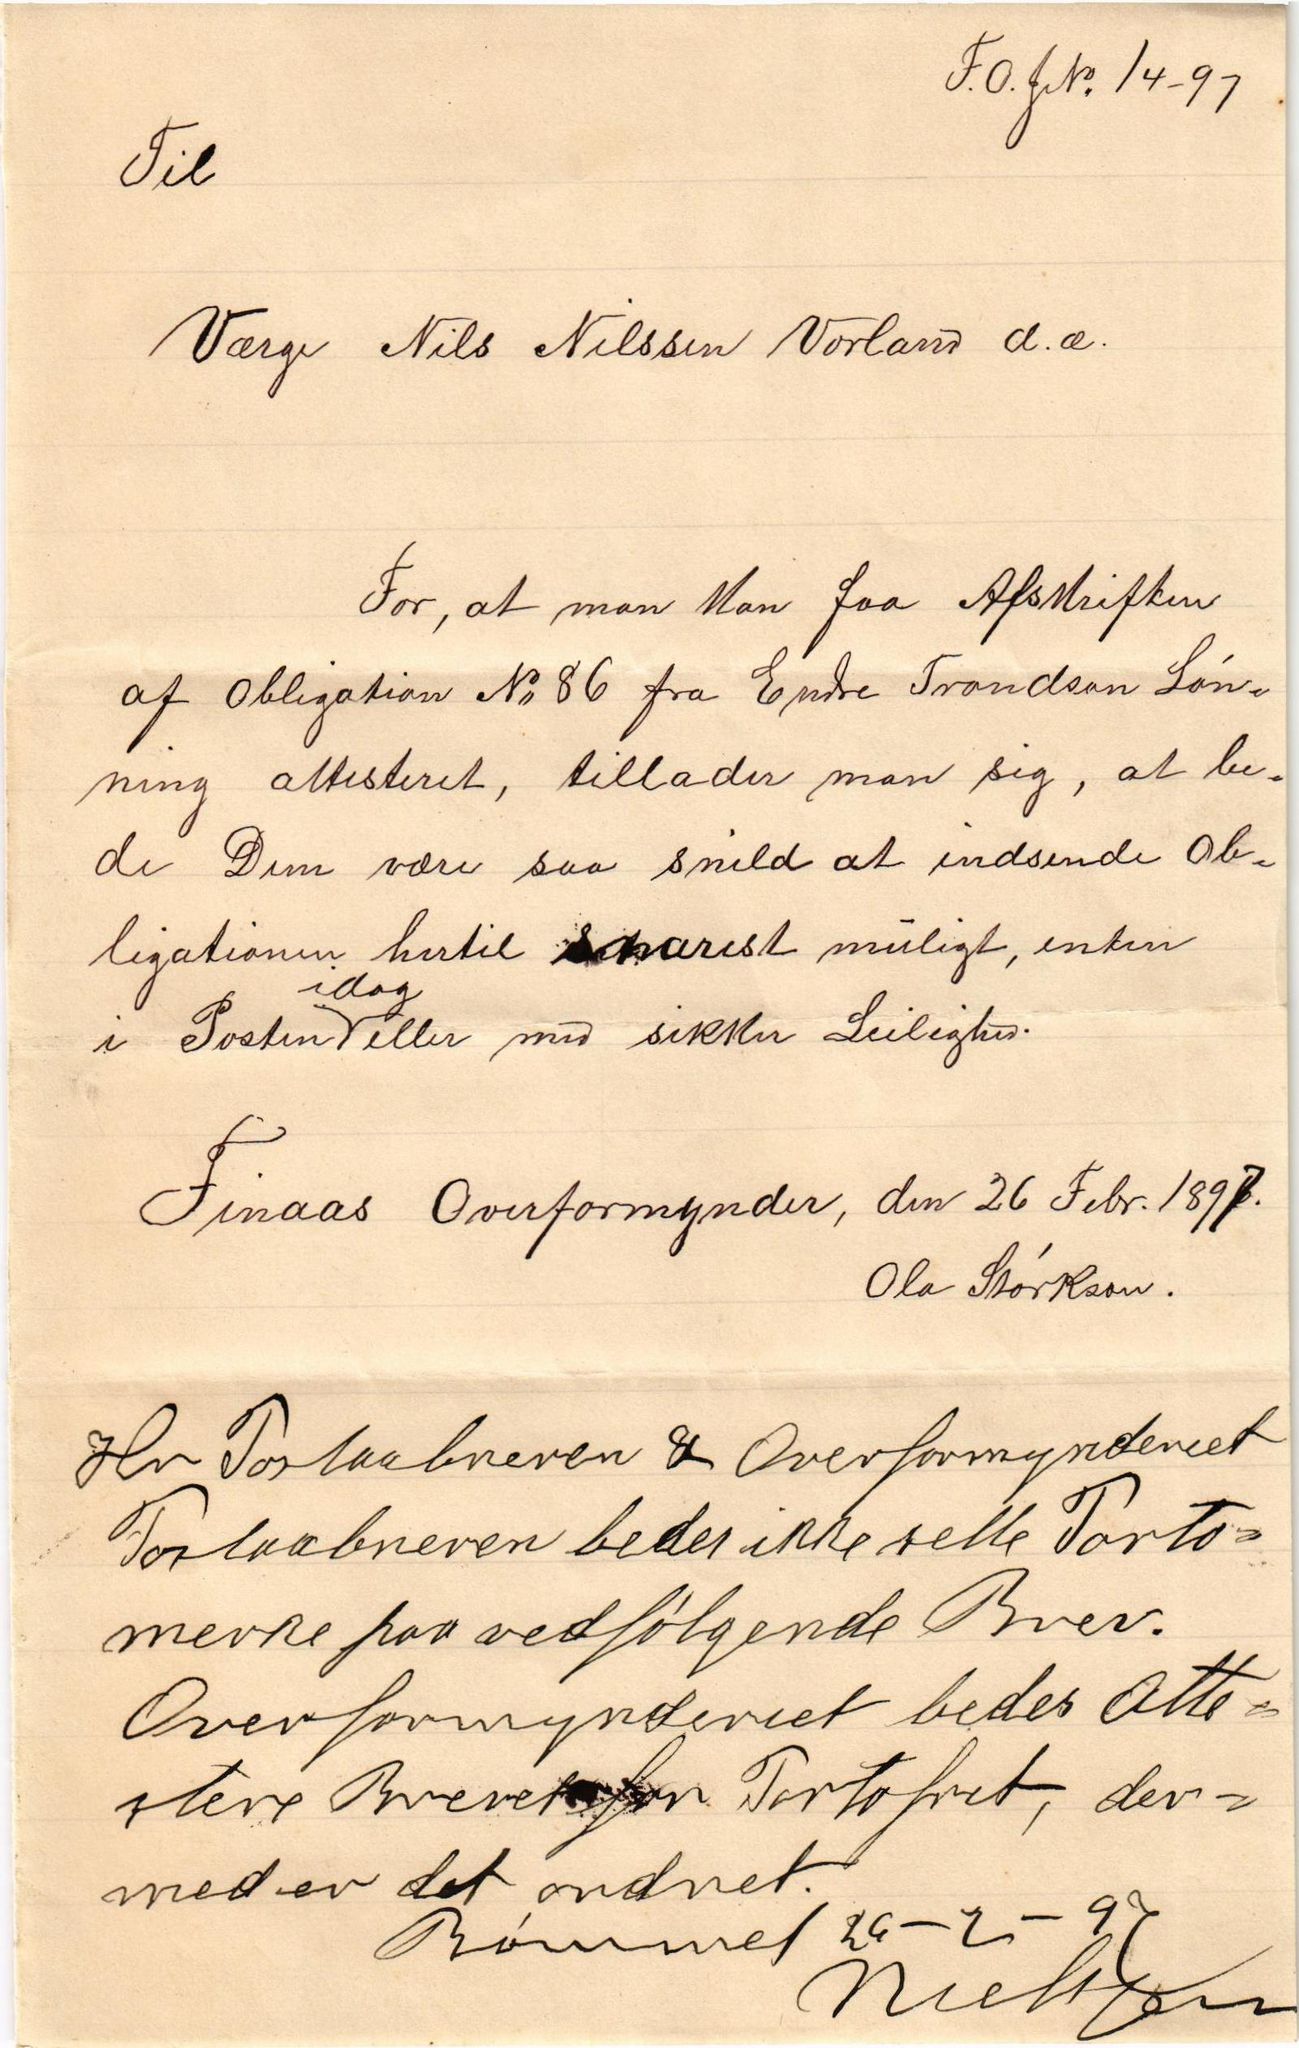 F.O.J.No. 14-97
Til
Værge Nils Nilssen Vorland d.æ.
For, at man kan faa Afskriften
af Obligation No 86 fra Endre Trondson Løn-
ning attesteret, tillader man sig, at be-
de Dem være saa snild at indsende Ob-
ligationen hertil snarest muligt, enten
idag
i Posten eller med sikker Leilighed.
Finaas Overformynder, den 26 Febr. 1897.
Ola Størkson.
Hr Postaabneren & Overformynderiet
Postaabneren bedes ikke sette Porto-
merke paa vedfølgende Brev.
Overformynderiet bedes Atte-
stere Brevet for Portofrit, der-
med er det ordnet.
Bømmel 26-2-97